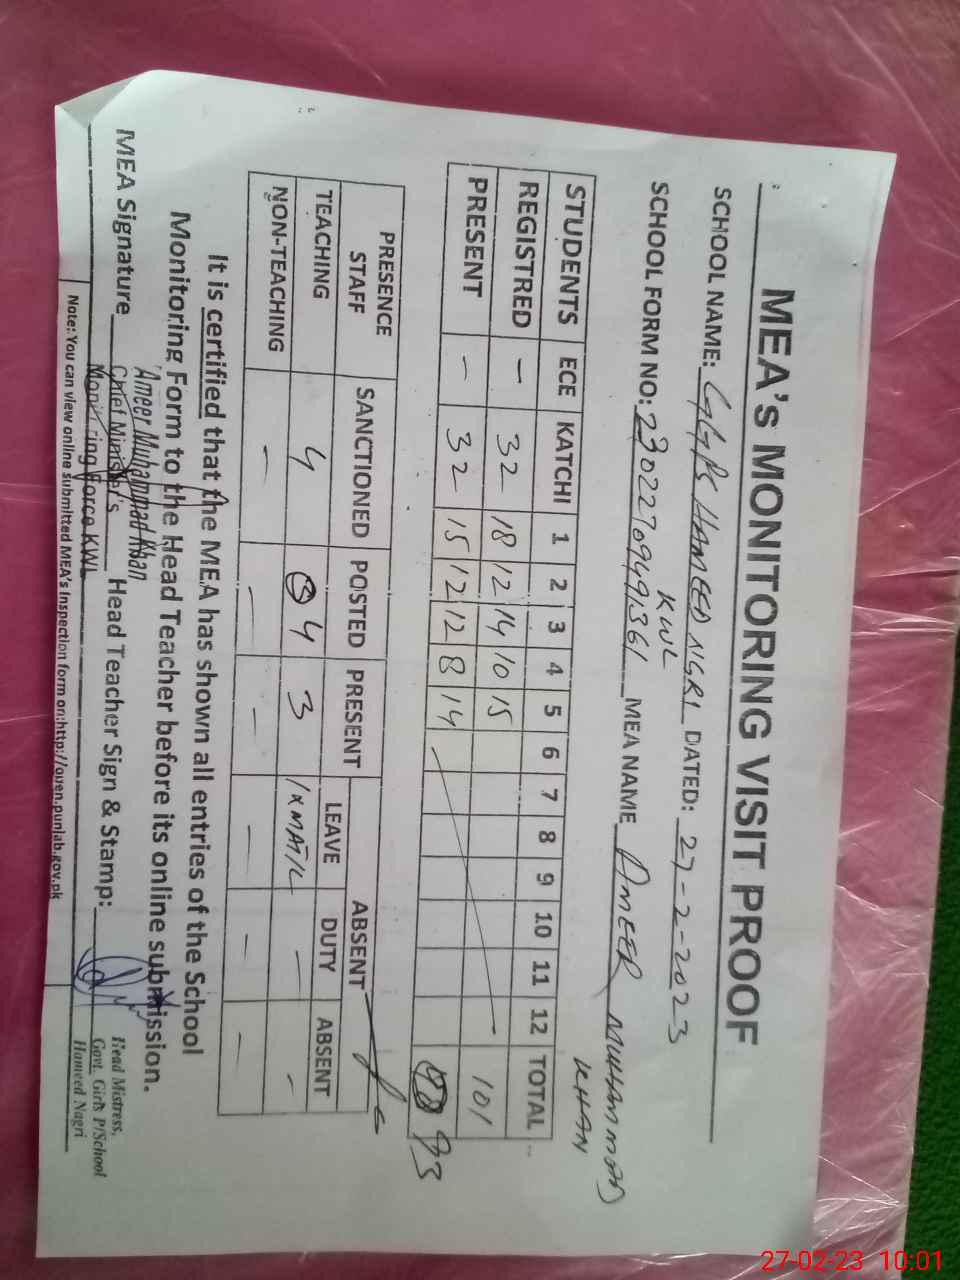 MEA's MONITORING VISIT PROOF
SCHOOL NAME: GGPS HAMEED NGRI DATED: 27-2-2023
KWL
SCHOOL FORM NO: 23022709491361 MEA NAME AMEER MUHAMMAD
KHAN
STUDENTS ECE KATCHI 1 2 3 4 5 6 7 8 9 10 11 12 TOTAL
REGISTRED - 32 18 12 14 10 15 101
PRESENT - 32 15 12 12 8 14 93
PRESENCE STAFF SANCTIONED POSTED PRESENT ABSENT
LEAVE DUTY ABSENT
TEACHING 4 4 3 1xMAT/L - -
NON-TEACHING - - - - - -
It is certified that the MEA has shown all entries of the School
Monitoring Form to the Head Teacher before its online submission.
Ameer Muhammad Khan
Chief Minister's
Monitoring Force KWL
MEA Signature Head Teacher Sign & Stamp:
Head Mistress,
Govt. Girls P/School
Hameed Nagri
Note: You can view online submitted MEA's Inspection form on:http://open.punjab.gov.pk
27-02-23 10:01